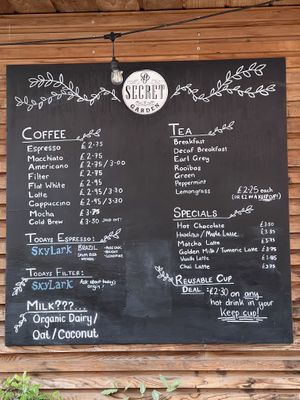 SECRET
GARDEN
COFFEE
Espresso £2.75
Macchiato £2.75
Americano £2.75/3.00
Filter £2.75
Flat White £2.95
Latte £2.95/3.20
Cappuccino £2.95/3.20
Mocha £3.75
Cold Brew £3.50
TODAYS ESPRESSO:
SKYLARK BRAZIL
TODAYS FILTER:
SKYLARK Ask about today's
origin!
MILK???...
Organic Dairy/
Oat/Coconut
TEA
Breakfast
Decaf Breakfast
Earl Grey
Rooibos
Green
Peppermint
Lemongrass
£2.75 each
(or £2 in a KEEPCUP!)
SPECIALS
Hot Chocolate £3.50
Hazelnut/Maple Latte £3.75
Matcha Latte £3.75
Golden Milk/Turmeric Latte £3.75
Vanilla Latte £3.45
Chai Latte £3.75
REUSABLE CUP
DEAL: £2.30 on any
hot drink in your
Keep cup!